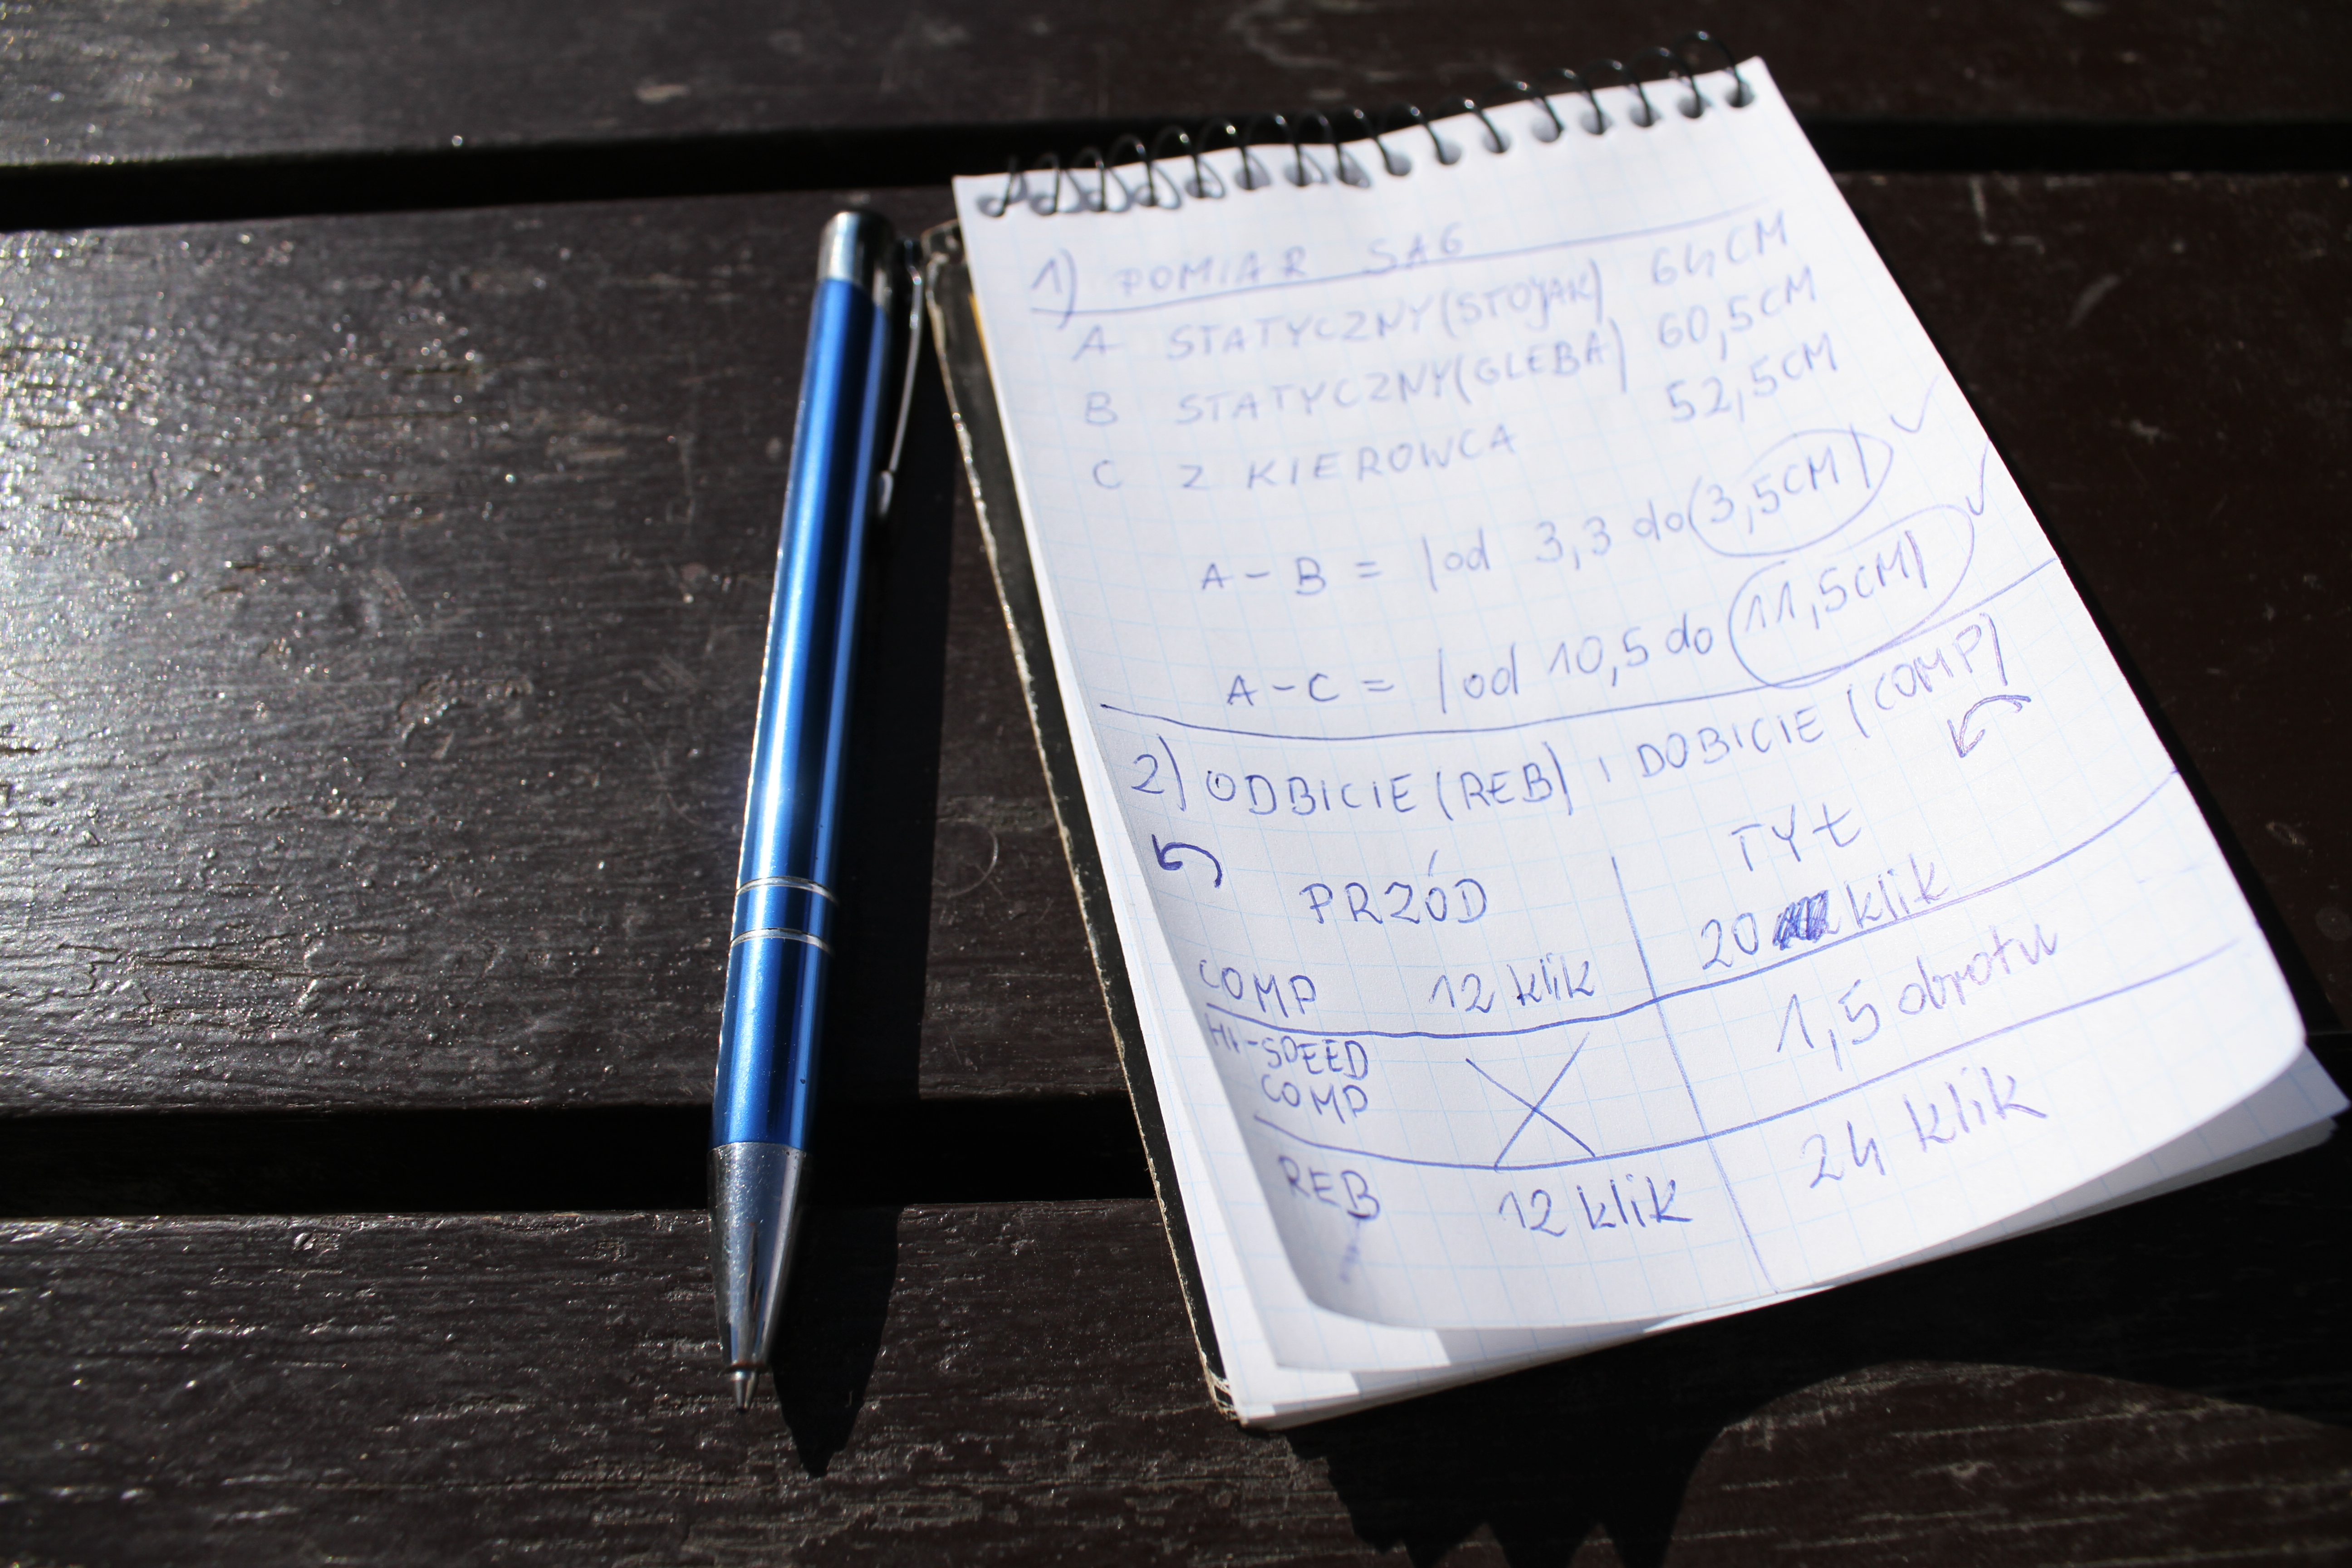 1) POMIAR SAG
A STATYCZNY (STOJAK) 64CM
B STATYCZNY (GLEBA) 60,5CM
C Z KIEROWCA 52,5CM
A - B = |od 3,3 do 3,5CM| ✓
A - C = |od 10,5 do 11,5CM| ✓
2) ODBICIE (REB) I DOBICIE (COMP)
PRZÓD TYŁ
COMP 12 klik 20 klik
HI-SPEED
COMP X 1,5 obrotu
REB 12 klik 24 klik